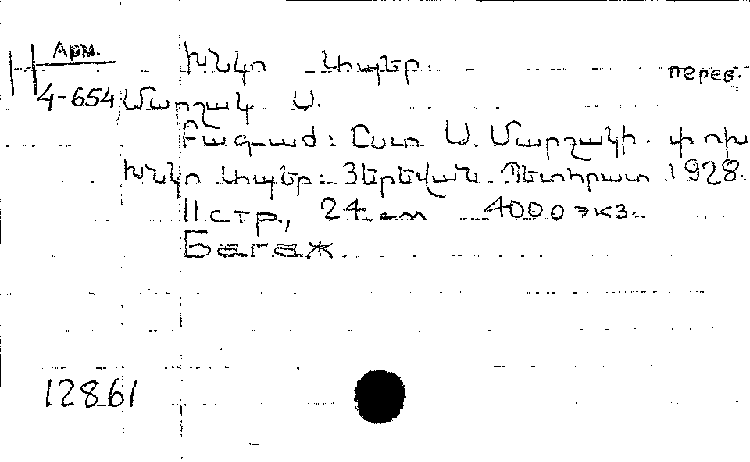 Арм.
Խնկո Ապեր. перев.
4-654 Մարշակ Ս.
Բագաժ: Ըստ Ս. Մարշակի. փոխ
Խնկո Ապեր: Յերեվան. Պետհրատ 1928.
11 стр., 24 cm 4000 экз.
Багаж.
12861